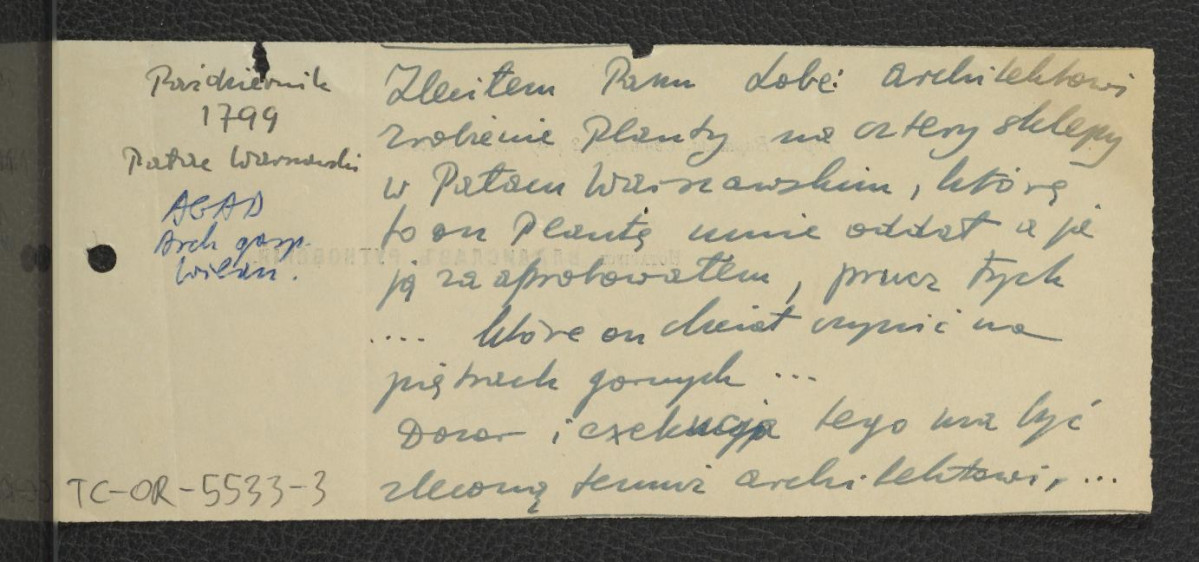 Październik
1799
Pałac Warszawski
AGAD
Arch gosp.
Wilan.
TC-OR-5533-3
Zleciłem Panu Lobé architektowi
zrobienie Planty na cztery sklepy
w Pałacu Warszawskim, którą
to on Plantę mnie oddał a ja
ją zaaprobowałem, prucz tych
.... które on chciał czynić na
piętrach gornych ...
Dozor i exekucja tego ma być
zleconą temuż architektowi, ...